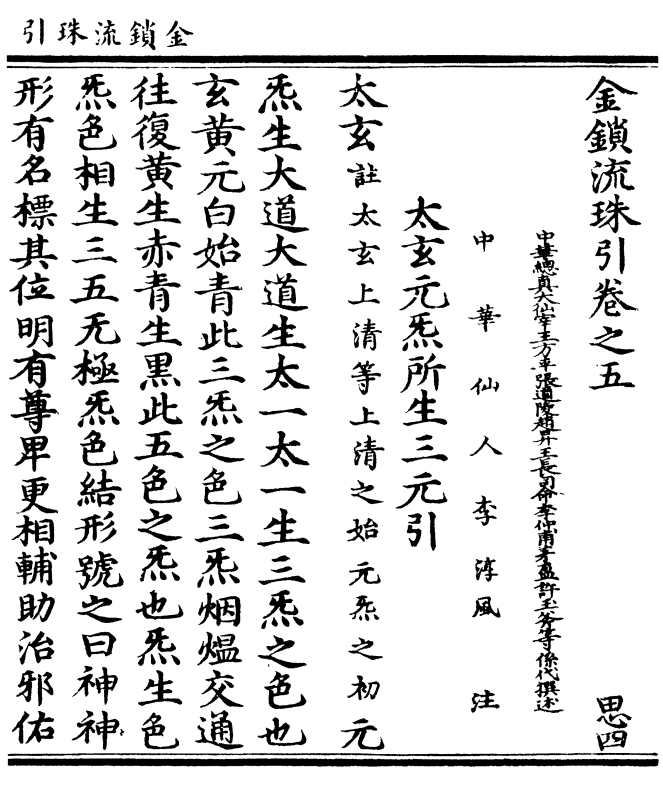 金鎖流珠引
金鎖流珠引卷之五 思四
中華總真大仙宰王方平張道陵趙昇王長司命李仲甫茅盈許玉斧等係代撰述
中華仙人李淳風注
太玄元炁所生三元引
太玄註太玄上清等上清之始元炁之初元
炁生大道大道生太一太一生三炁之色也
玄黃元白始青此三炁之色三炁烟熅交通
往復黃生赤青生黑此五色之炁也炁生色
炁色相生三五无極炁色結形號之曰神神
形有名標其位明有尊卑更相輔助治邪佑